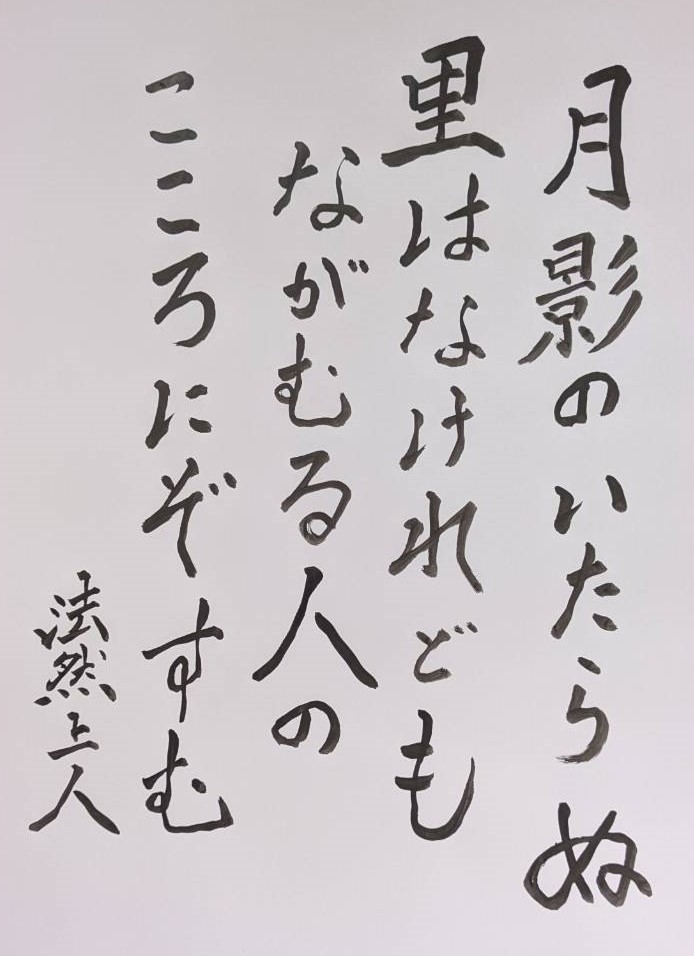 月影のいたらぬ
里はなけれども
ながむる人の
こころにぞすむ
法然上人